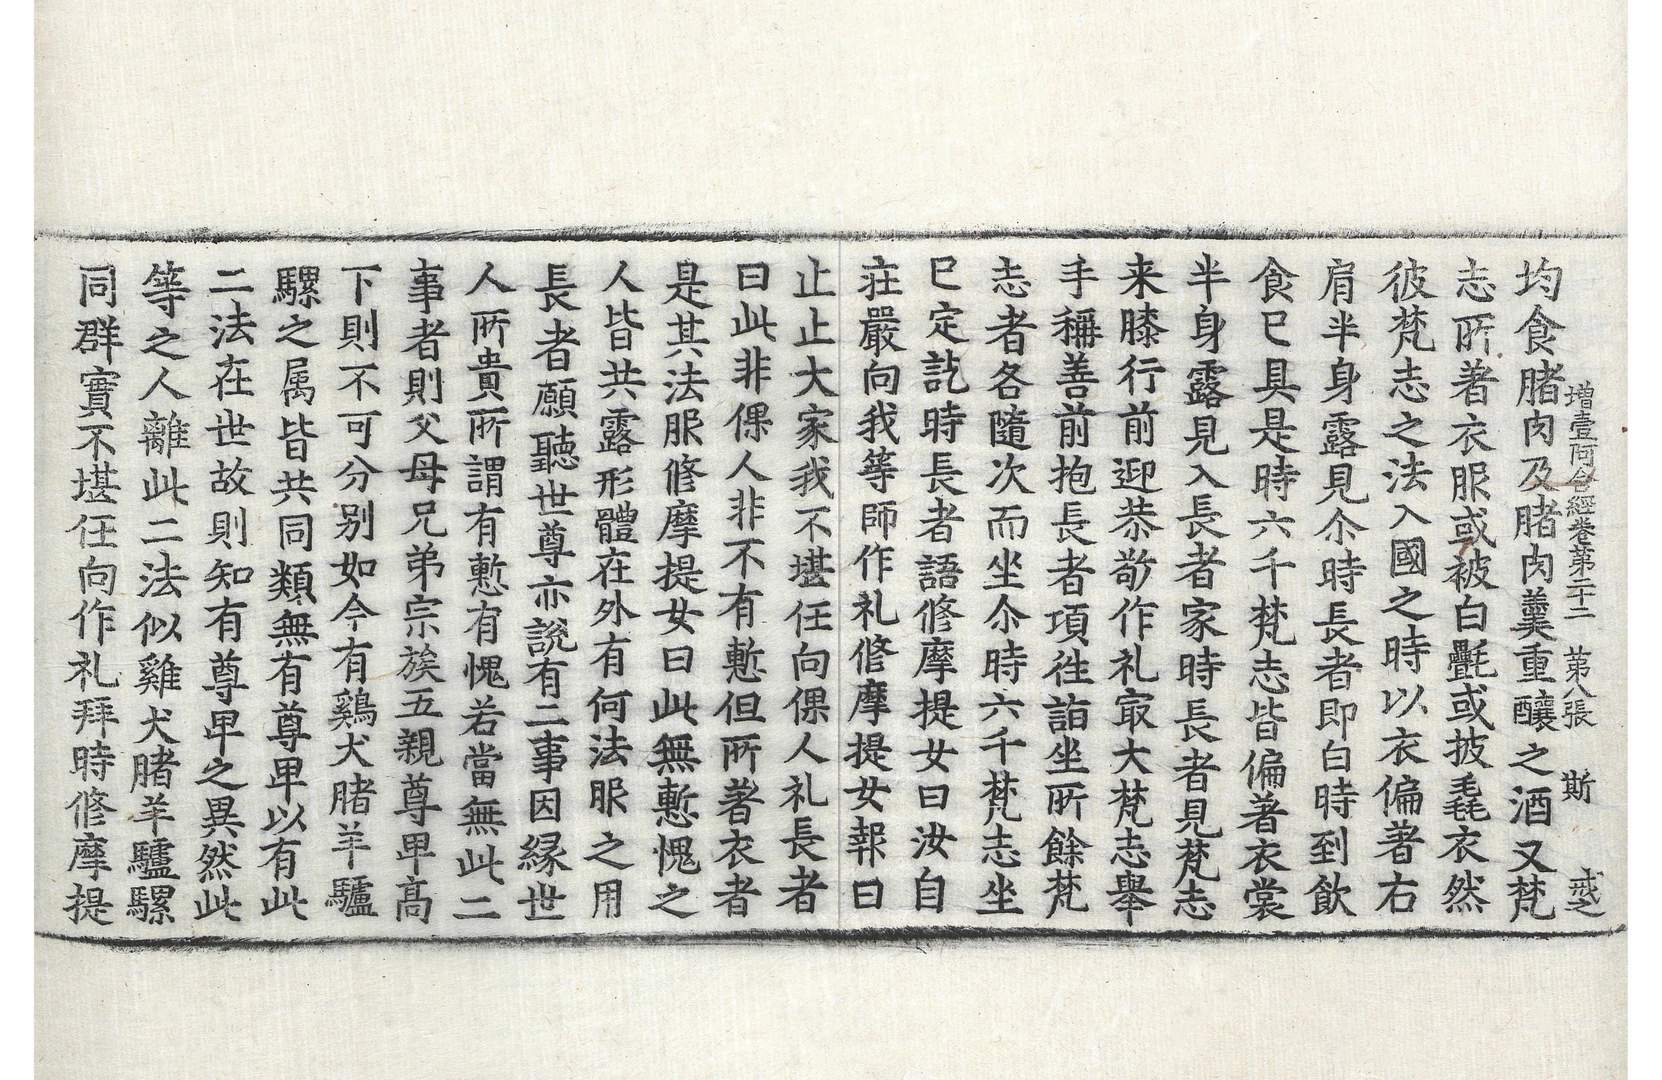 增壹阿含經卷第二十二　第八張　斯　戒之
均食豬肉及豬肉羹重釀之酒又梵
志所著衣服或被白氎或披毳衣然
彼梵志之法入國之時以衣偏著右
肩半身露見尒時長者即白時到飲
食已具是時六千梵志皆偏著衣裳
半身露見入長者家時長者見梵志
来膝行前迎恭敬作礼㝡大梵志舉
手稱善前抱長者項往詣坐所餘梵
志者各隨次而坐尒時六千梵志坐
已定訖時長者語修摩提女曰汝自
莊嚴向我等師作礼修摩提女報曰
止止大家我不堪任向倮人礼長者
曰此非倮人非不有慙但所著衣者
是其法服修摩提女曰此無慙愧之
人皆共露形體在外有何法服之用
長者願聽世尊亦說有二事因緣世
人所貴所謂有慙有愧若當無此二
事者則父母兄弟宗族五親尊卑高
下則不可分別如今有鷄犬豬羊驢
騾之属皆共同類無有尊卑以有此
二法在世故則知有尊卑之異然此
等之人離此二法似雞犬豬羊驢騾
同群實不堪任向作礼拜時修摩提